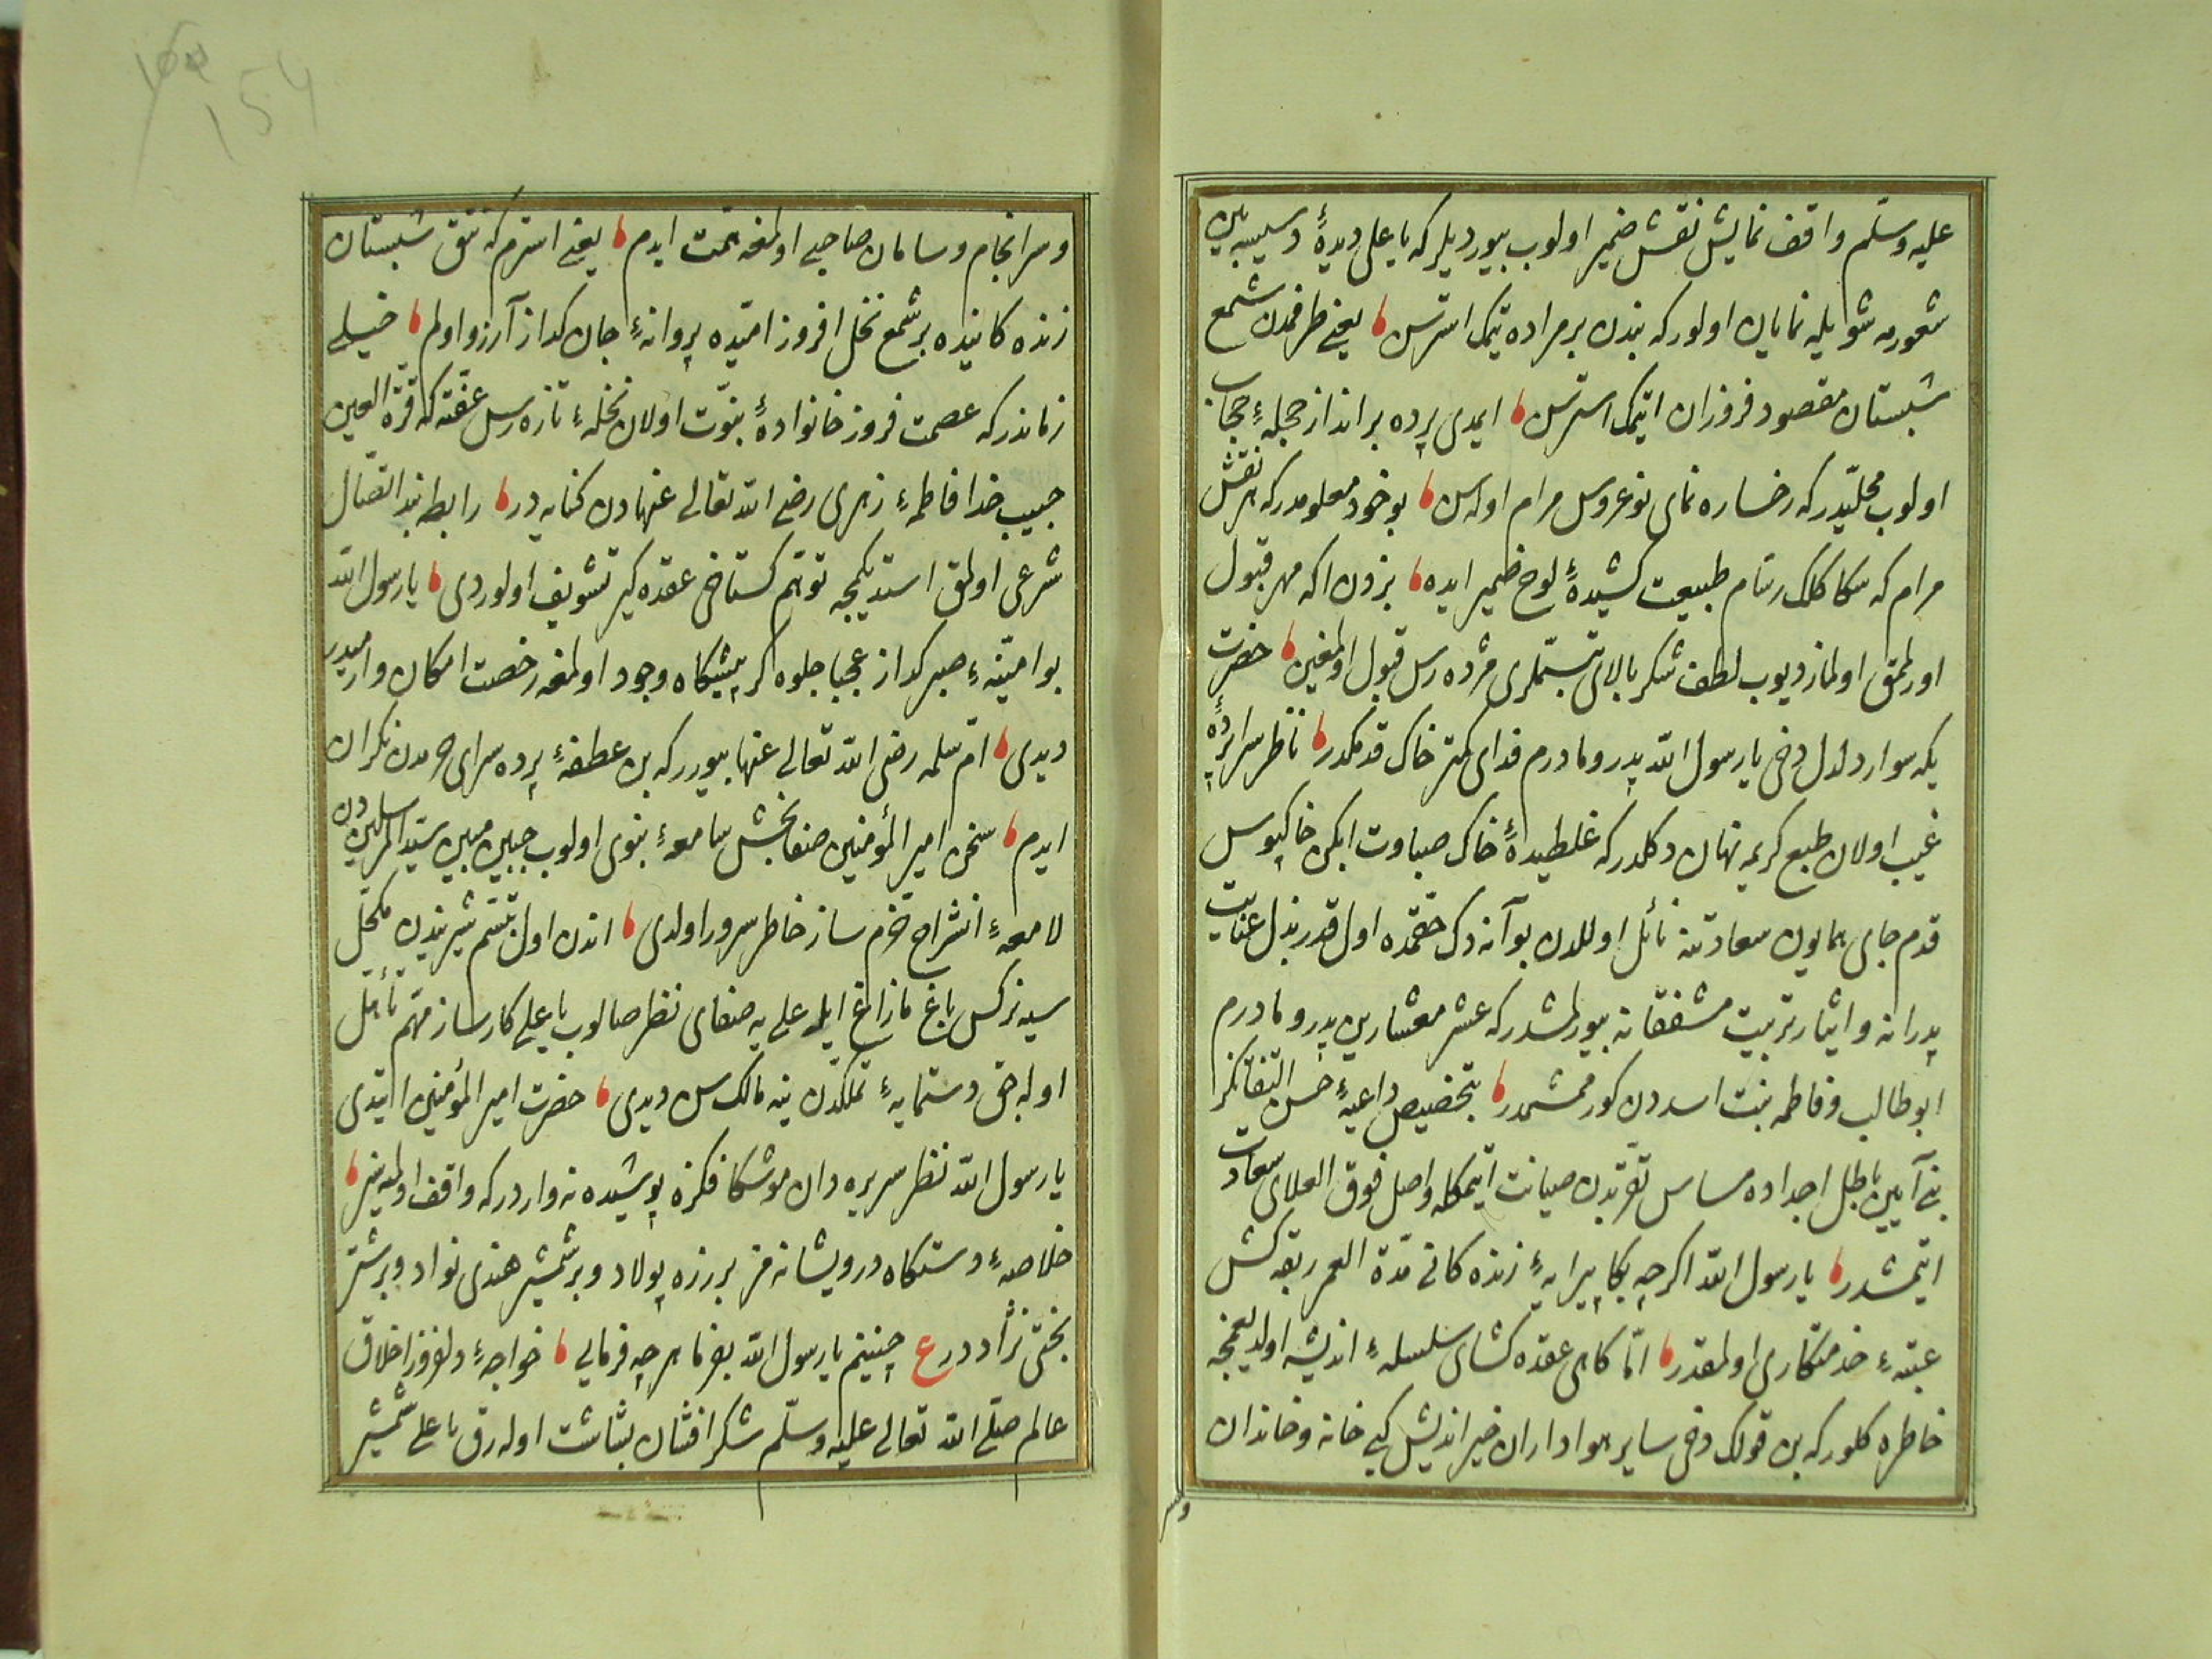 عليه وسلّم واقف نمايش نقش ضمير اولوب بيورديلر كه يا على ديدهٔ دسيسه بين
شعورمه شويله نمايان اولور كه بندن بر مراده تيمك استرسن يعنى طرفمدن شمع
شبستان مقصود فروزان ايتمك استرسن ايمدى پرده برانداز حجلهٔ حجاب
اولوب محليدر كه رخساره نماى نوعروس مرام اوله سن بو خود معلومدر كه هر نقش
مرام كه سكا كلك رسّام طبيعت كشيدهٔ لوح ضمير ايده بزدن اكه مهر قبول
اورلمق اولماز ديوب لطف شكر بالاى تبسّملرى مژده رس قبول اولمغين حضرت
يكه سوار دلدل دخى يا رسول الله پدر و مادرم فداى كمتر خاك قدمكدر ناظر سراپردهٔ
غيب اولان طبع كريمه نهان دكلدر كه غلطيدهٔ خاك صباوت ايكن خاكبوس
قدم جاى همايون سعادتنه نائل اوللدن بو آنه دك حقمده اول قدر بذل عنايت
پدرانه و ايثار تربيت مشفقانه بيورلمشدر كه عشر معشارين پدر و مادرم
ابو طالب و فاطمه بنت اسددن كورممشمدر بتخصيص داعيهٔ حسن التفاتكز
بنى آيين باطل اجداده مساس تقرّبدن صيانت ايتمكله واصل فوق العلاى سعادت
ايتمشدر يا رسول الله اكرچه بكا پيرايهٔ زنده كانى مدّة العمر ربقه كش
عتبهٔ خدمتكارى اولمقدر امّا كاهى عقده كشاى سلسلهٔ انديشه اولديغمجه
خاطره كلور كه بن قولك دخى ساير هواداران خير انديش كبى خانه و خاندان
وسر
و سرانجام و سامان صاحبى اولمغه همّت ايدم يعنى استرم كه تتق شبستان
زنده كانيده بر شمع نخل افروز اميّده پروانهٔ جان كداز آرزو اولم خيلى
زماندر كه عصمت فروز خانوادهٔ نبوّت اولان نخلهٔ تازه رس عفّته كه قرّة العين
حبيب خدا فاطمهٔ زهرى رضى الله تعالى عنهادن كنايه در رابطه بند اتصال
شرعى اولمق استديكمجه توهّم كستاخى عقده كير تشويف اولوردى يا رسول الله
بو امنيّهٔ صبر كداز عجبا جلوه كر پيشكاه وجود اولمغه رخصت امكان وارميدر
ديدى امّ سلمه رضى الله تعالى عنها بيورر كه بن عطفهٔ پرده سراى حرمدن نكران
ايدم سخن امير المؤمنين صفا بخش سامعهٔ نبوى اولوب جبين مبين سيّد المرسليندن
لامعهٔ انشراح خرّم ساز خاطر سرور اولدى اندن اول تبسّم شيريندن مكحّل
سيه نركس باغ مازاغ ايله على يه صفاى نظر صالوب يا على كارساز مهمّ تأهّل
اوله جق دستمايهٔ تملّكدن نيه مالك سن ديدى حضرت امير المؤمنين ايتدى
يا رسول الله نظر سريره دان موشكافكزه پوشيده نه واردر كه واقف اولميه سز
خلاصهٔ دستكاه درويشانه مز بر زره پولاد و بر شمشير هندى نواد و بر شتر
بختى نژاددر ع چنينم يا رسول الله بفرما هرچه فرمايى خواجهٔ دلفروز اخلاق
عالم صلّى الله تعالى عليه وسلّم شكر افشان بشاشت اوله رق يا على شمشير
154